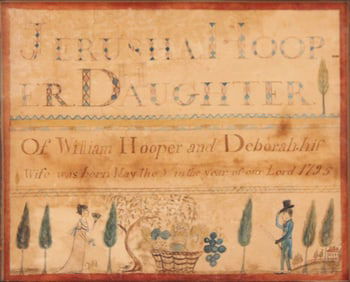 JERUSHA HOOP
ER DAUGHTER
Of William Hooper and Deborah his
Wife was born May the in the year of our Lord 1795